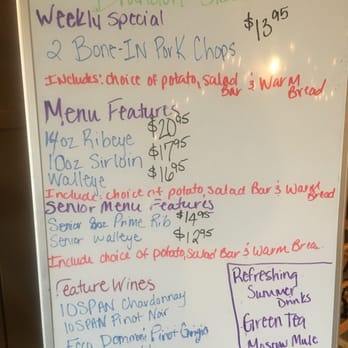 Weekly Special $13.95
2 Bone-In Pork Chops
Includes: choice of potato, salad Bar & Warm Bread
Menu Features
14oz Ribeye $20.95
10oz Sirloin $17.95
Walleye $16.95
Include: choice of potato, salad Bar & Warm Bread
Senior Menu Features
Senior 8oz Prime Rib $14.95
Senior Walleye $12.95
Include choice of potato, salad Bar & Warm Brea
Feature Wines
10SPAN Chardonnay
10SPAN Pinot Noir
Ecco Domani Pinot Grigio
Refreshing
Summer
Drinks
Green Tea
Moscow Mule